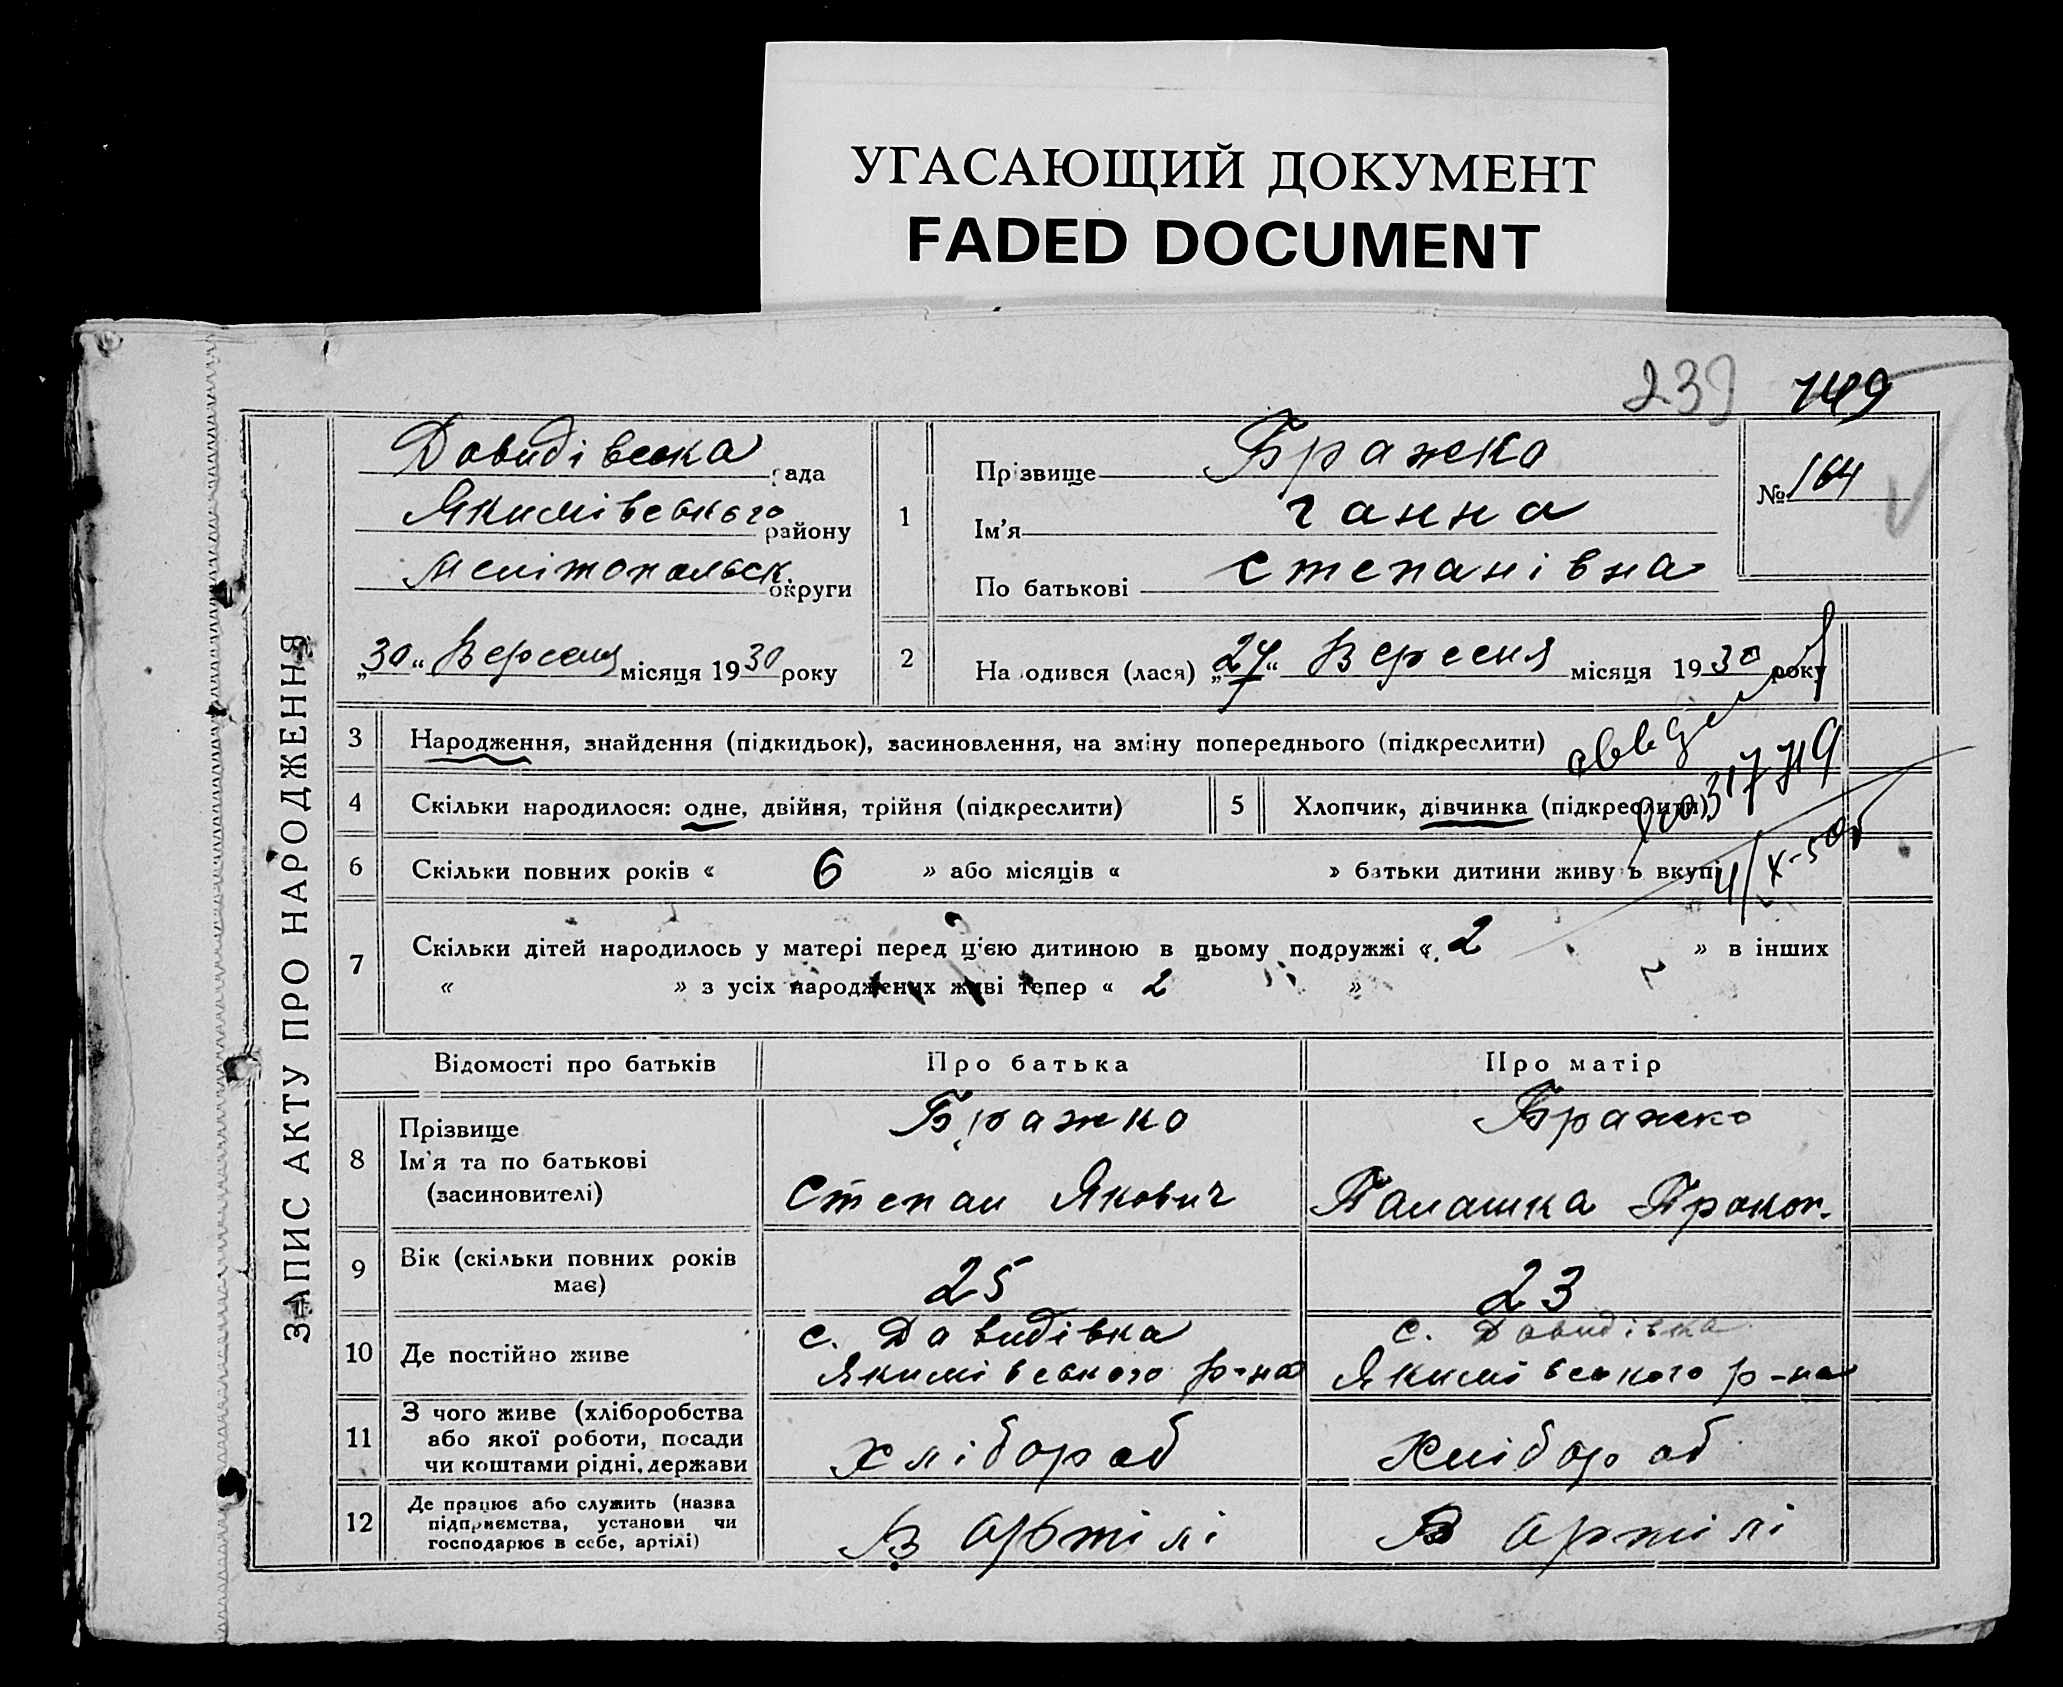 УГАСАЮЩИЙ ДОКУМЕНТ
FADED DOCUMENT
239 749
ЗАПИС АКТУ ПРО НАРОДЖЕННЯ
Довидівська рада
Якимівського району
Мелітопольск. округи
„30“ Вересня місяця 1930 року
1
Прізвище Бражко
Ім’я Ганна
По батькові Степанівна
№ 164
2
Народився (лася) „27“ Вересня місяця 1930 року
3 Народження, знайдення (підкидьок), засиновлення, на зміну попереднього (підкреслити)
4 Скільки народилося: одне, двійня, трійня (підкреслити)
5 Хлопчик, дівчинка (підкреслити)
6 Скільки повних років « 6 » або місяців « » батьки дитини живуть вкупі
7 Скільки дітей народилось у матері перед цією дитиною в цьому подружжі « 2 » в інших
« » з усіх народжених живі тепер « 2 »
Відомості про батьків Про батька Про матір
8 Прізвище
Ім’я та по батькові
(засиновителі)
Бражко
Степан Якович
Бражко
Палашка Прокоп.
9 Вік (скільки повних років
має)
25
23
10 Де постійно живе
с. Довидівка
Якимівського р-на
с. Довидівка
Якимівського р-на
11 З чого живе (хліборобства
або якої роботи, посади
чи коштами рідні, держави
хлібороб
хлібороб
12 Де працює або служить (назва
підприємства, установи чи
господарює в себе, артілі)
В артілі
В артілі